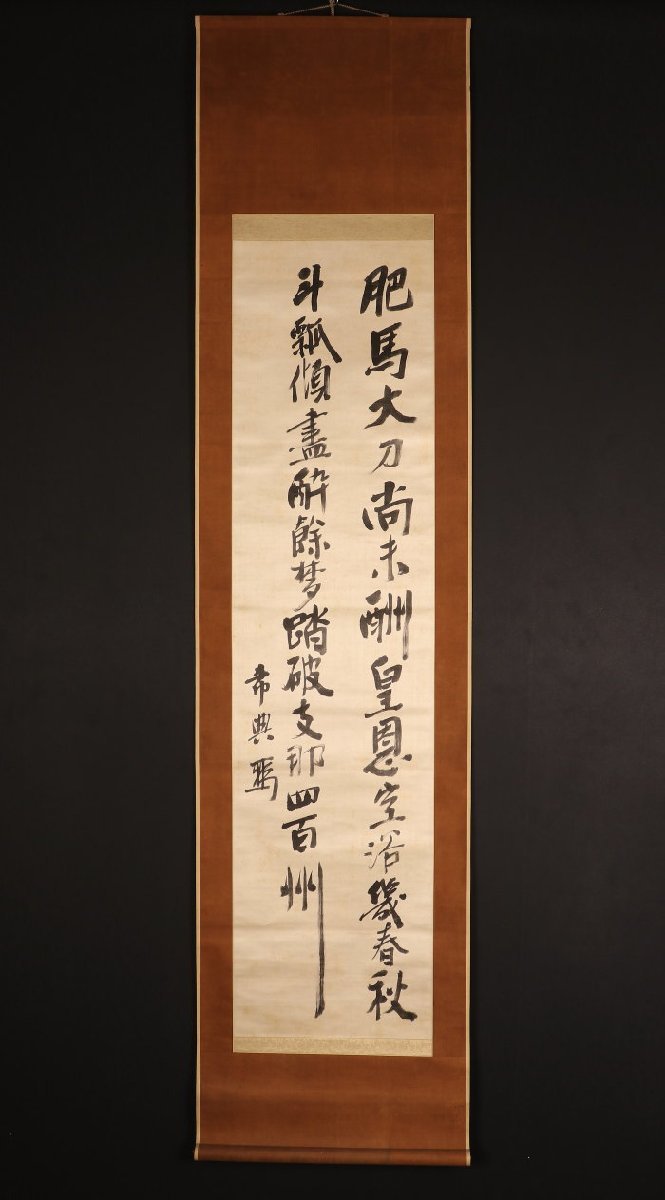 肥馬大刀尚未酬皇恩空浴幾春秋
斗瓢傾盡酔餘梦踏破支那四百州
希典